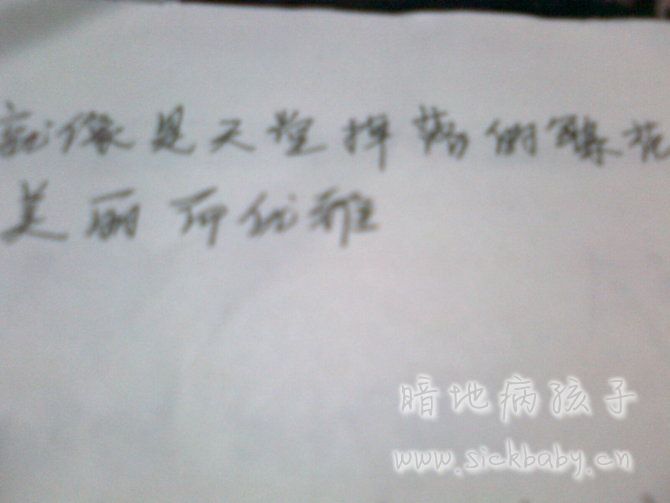 就像是天堂掉落的雪花
美丽而优雅
暗地病孩子
www.sickbaby.cn